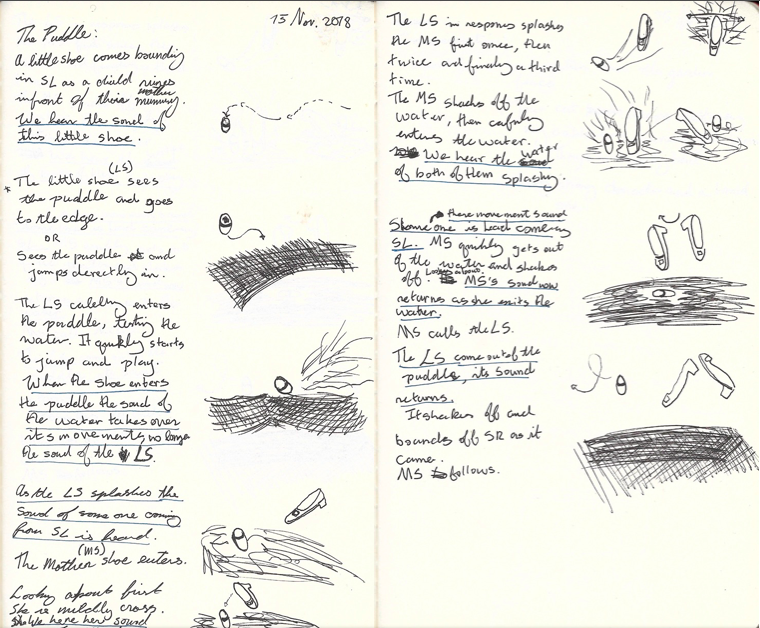 13 Nov. 2018
The Puddle:
A little shoe comes bounding
in SL as a child runs
infront of there mother mummy.
We hear the sound of
this little shoe.
(LS)
* The little shoe sees
the puddle and goes
to the edge.
OR
Sees the puddle and
jumps derectly in.
The LS enters
the puddle, testing the
water. It quikly starts
to jump and play.
When the shoe enters
the puddle the sound of
the water takes over
its movements no longer
the sound of the LS.
As the LS splashes the
sound of some one coming
from SL is heard.
(MS)
The Mother shoe enters.
Looky about first
She is mildly cross.
We here her sound
The LS in response splashes
the MS first once, then
twice and finaly a third
time.
The MS shacks off the
water, then
enters the water.
We hear the water
of both of them splashy.
there movement sound
Shome one is heard coming
SL. MS quikly gets out
of the water and shakes
off. MS's sound now
returns as she exits the
water.
MS calls the LS.
The LS come out of the
puddle, its sound
returns.
It shakes off and
bounds off SR as it
came.
MS follows.